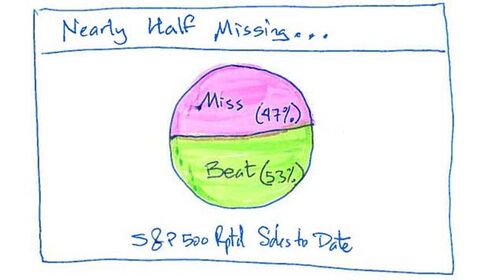 Nearly Half Missing...
Miss (47%)
Beat (53%)
S&P 500 Rptd Sales to Date